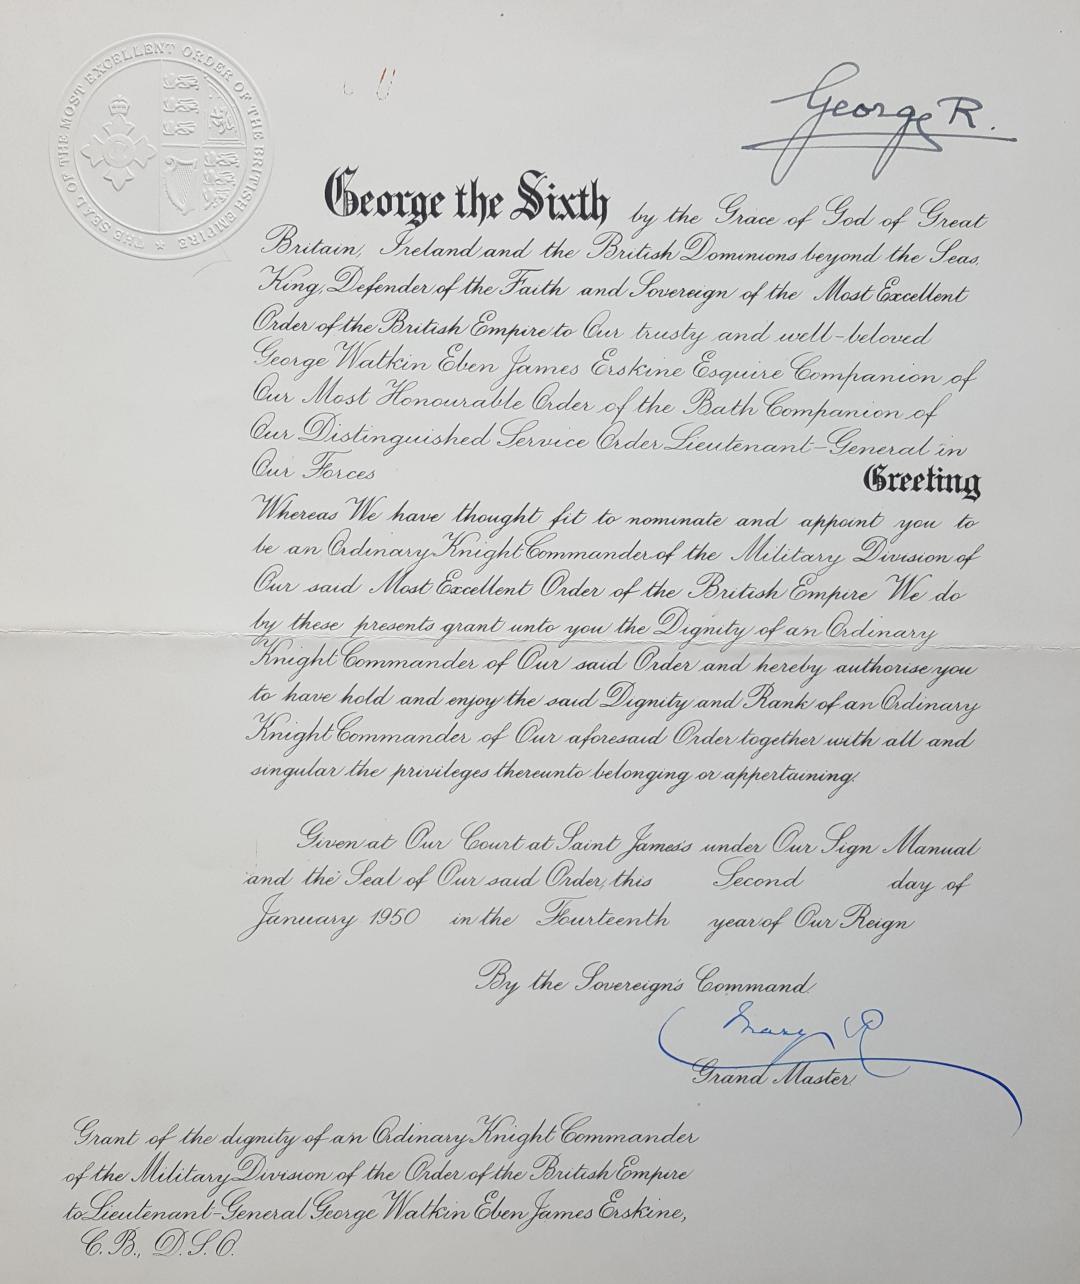 THE SEAL OF THE MOST EXCELLENT ORDER OF THE BRITISH EMPIRE
George R.
George the Sixth by the Grace of God of Great
Britain, Ireland and the British Dominions beyond the Seas,
King, Defender of the Faith and Sovereign of the Most Excellent
Order of the British Empire to Our trusty and well-beloved
George Watkin Eben James Erskine Esquire Companion of
Our Most Honourable Order of the Bath Companion of
Our Distinguished Service Order Lieutenant-General in
Our Forces Greeting
Whereas We have thought fit to nominate and appoint you to
be an Ordinary Knight Commander of the Military Division of
Our said Most Excellent Order of the British Empire We do
by these presents grant unto you the Dignity of an Ordinary
Knight Commander of Our said Order and hereby authorise you
to have hold and enjoy the said Dignity and Rank of an Ordinary
Knight Commander of Our aforesaid Order together with all and
singular the privileges thereunto belonging or appertaining.
Given at Our Court at Saint James's under Our Sign Manual
and the Seal of Our said Order, this Second day of
January 1950 in the Fourteenth year of Our Reign
By the Sovereign's Command.
Mary R
Grand Master.
Grant of the dignity of an Ordinary Knight Commander
of the Military Division of the Order of the British Empire
to Lieutenant-General George Watkin Eben James Erskine,
C.B., D.S.O.